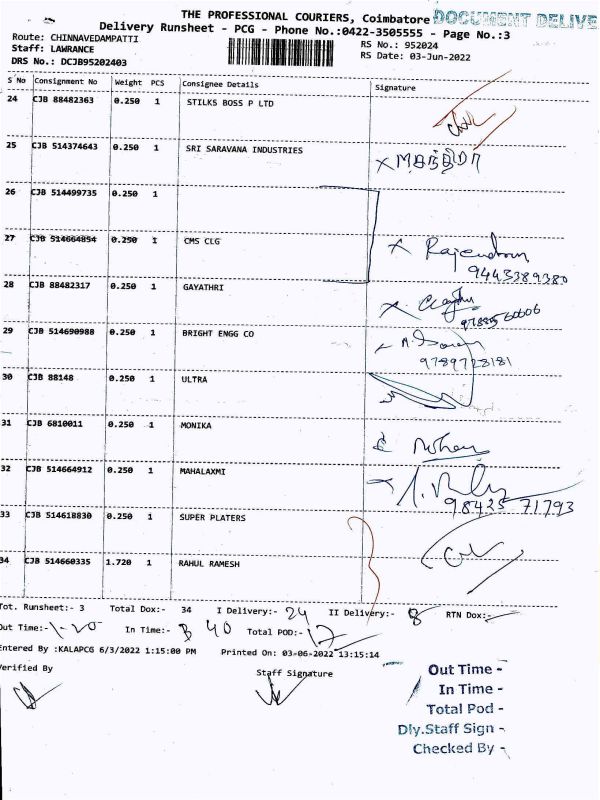 THE PROFESSIONAL COURIERS, Coimbatore DOCUMENT DELIVE
Delivery Runsheet - PCG - Phone No.:0422-3505555 - Page No.:3
Route: CHINNAVEDAMPATTI RS No.: 952024
Staff: LAWRANCE RS Date: 03-Jun-2022
DRS No.: DCJB95202403
S No Consignment No Weight PCS Consignee Details Signature
24 CJB 88482363 0.250 1 STILKS BOSS P LTD
25 CJB 514374643 0.250 1 SRI SARAVANA INDUSTRIES
26 CJB 514499735 0.250 1
27 CJB 514664854 0.250 1 CMS CLG x Rajendran
9443389380
28 CJB 88482317 0.250 1 GAYATHRI
29 CJB 514690988 0.250 1 BRIGHT ENGG CO
9789728181
30 CJB 88148 0.250 1 ULTRA
31 CJB 6810011 0.250 1 MONIKA
32 CJB 514664912 0.250 1 MAHALAXMI
98435 71793
33 CJB 514618830 0.250 1 SUPER PLATERS
34 CJB 514660335 1.720 1 RAHUL RAMESH
Tot. Runsheet:- 3 Total Dox:- 34 I Delivery:- 24 II Delivery:- 8 RTN Dox:-
Out Time:- 1-20 In Time:- 40 Total POD:- 17
Entered By :KALAPCG 6/3/2022 1:15:00 PM Printed On: 03-06-2022 13:15:14
Verified By Staff Signature
Out Time -
In Time -
Total Pod -
Dly.Staff Sign -
Checked By -